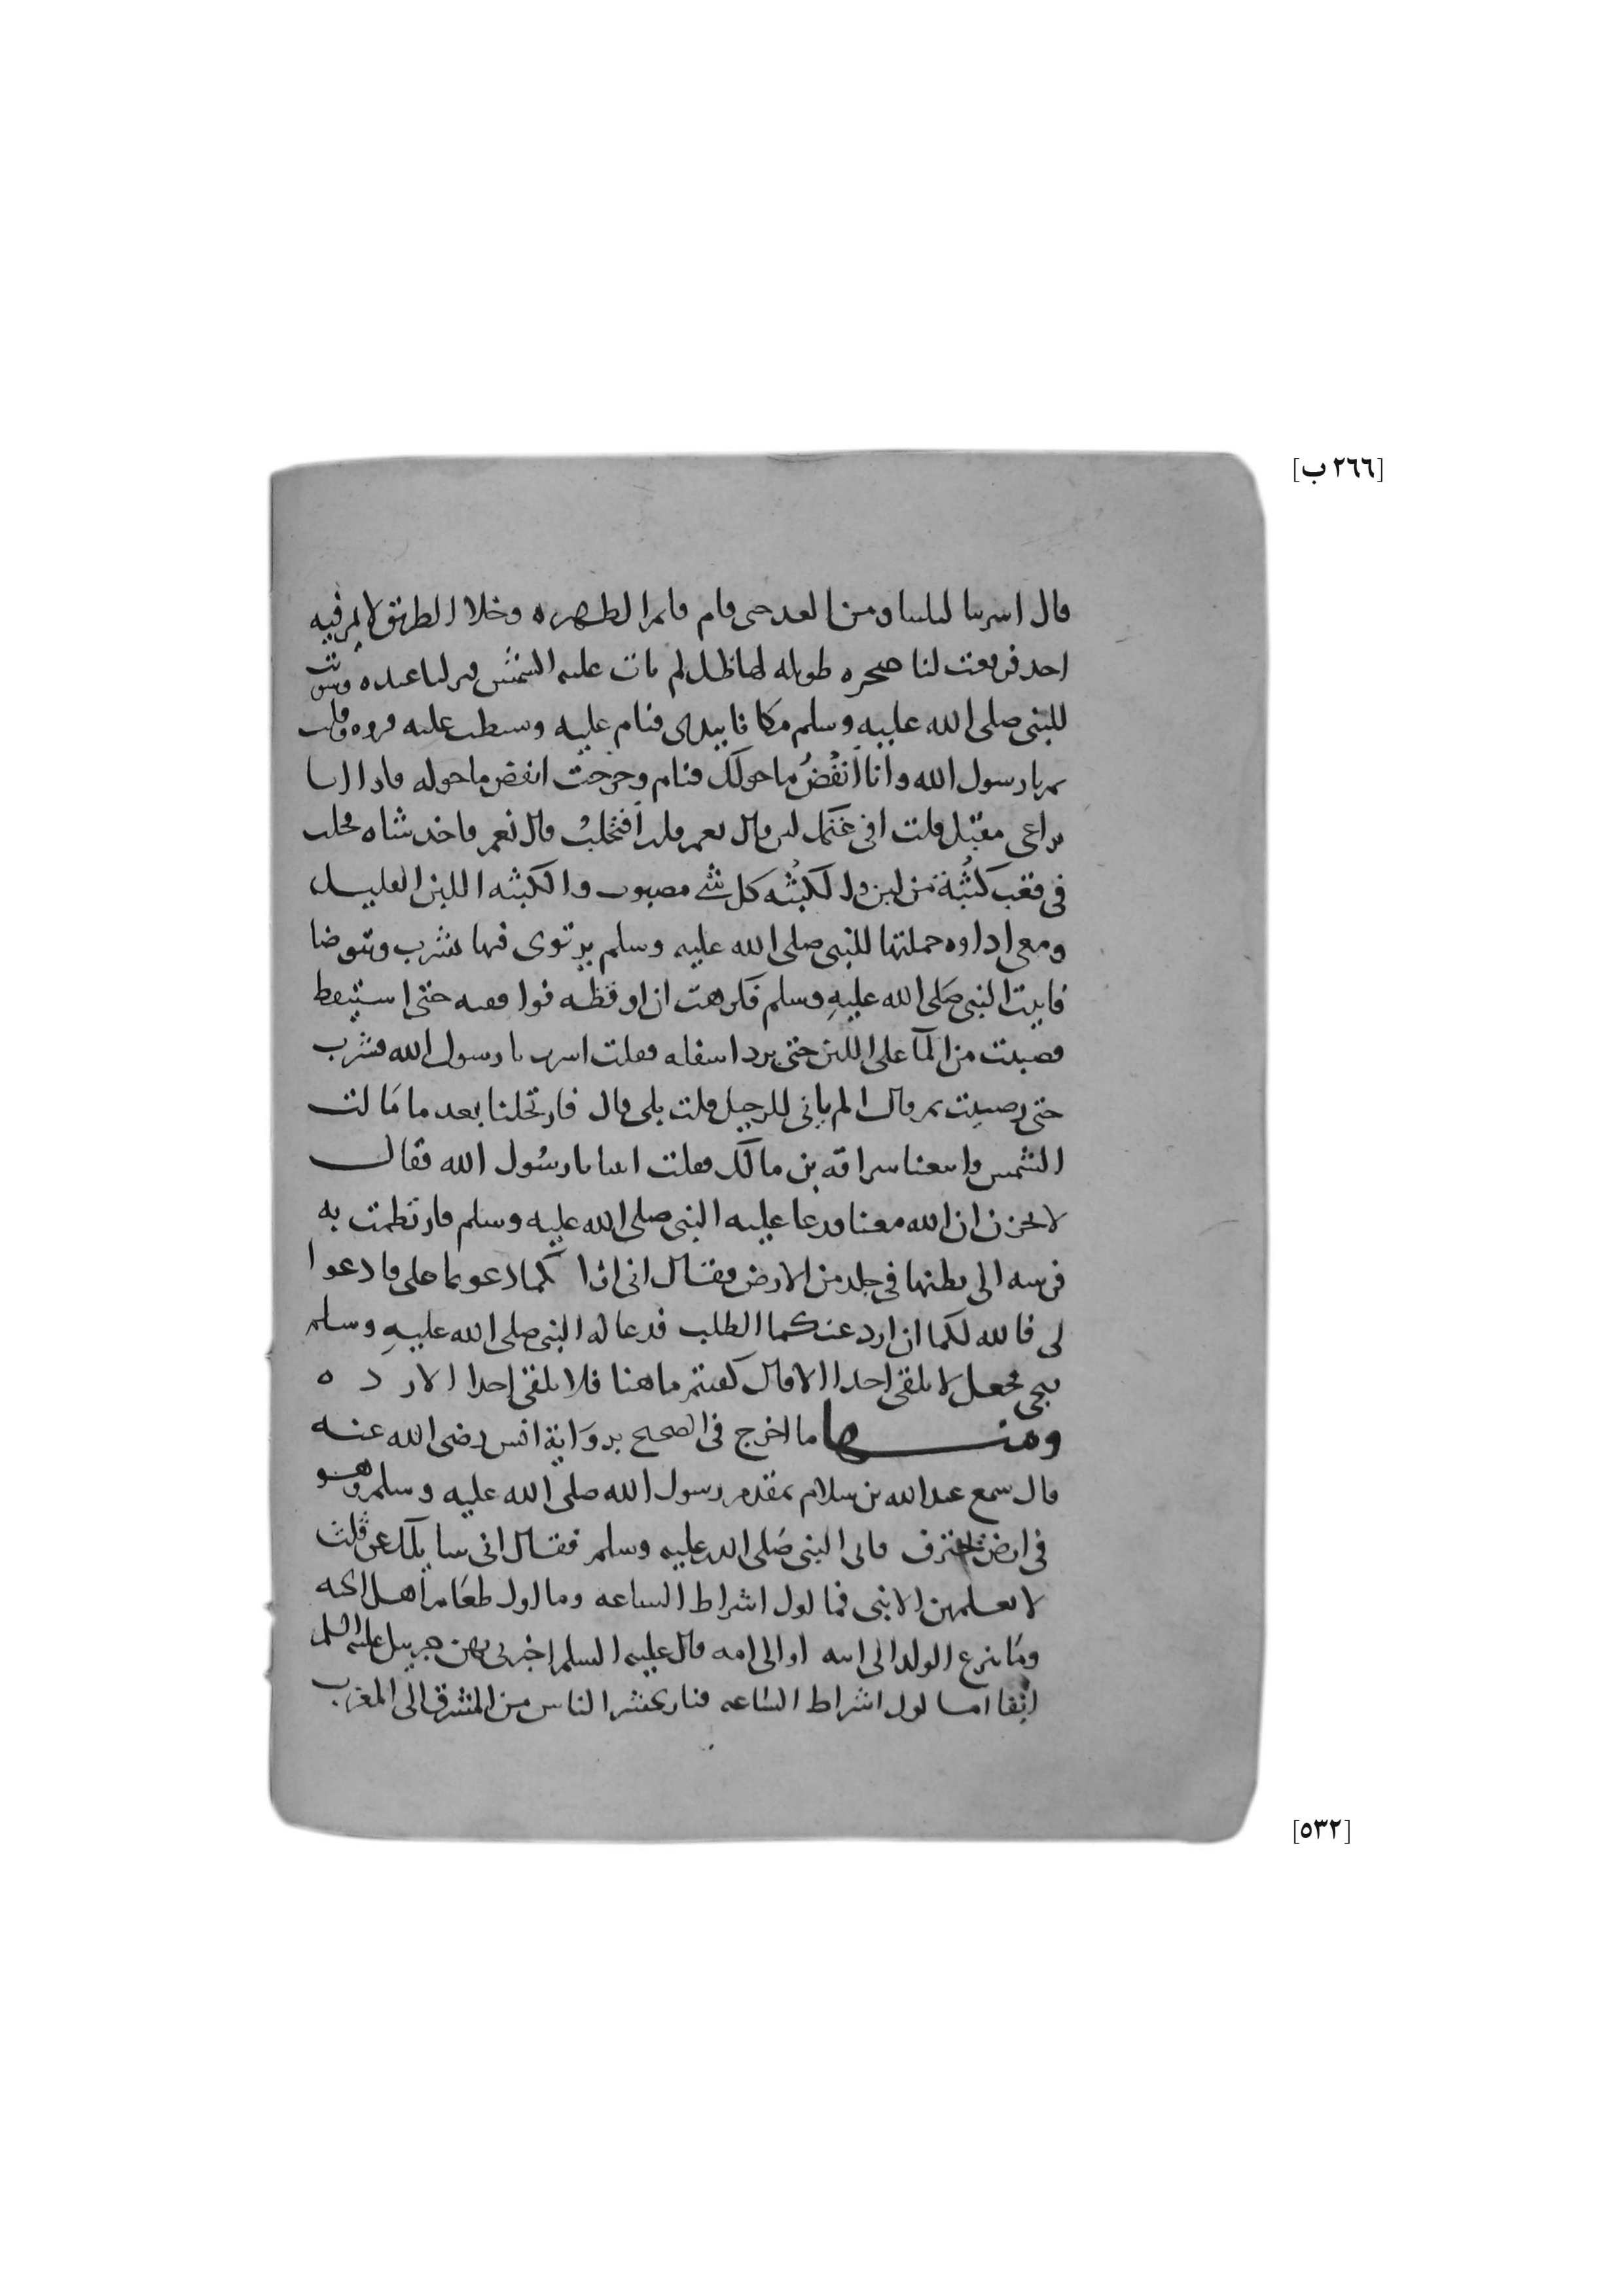 [٢٦٦ ب]
قال اسرينا ليلتنا ومن الغد حتى قام قايم الظهيره وخلا الطريق لا يمر فيه
احد فرفعت لنا صخره طويله لها ظل لم تات عليه الشمس فنزلنا عنده وسويت
للنبي صلى الله عليه وسلم مكانا بيدى فنام عليه وبسطت عليه فروه وقلت
نم يا رسول الله وانا أنفُضُ ما حولك فنام وخرجت انفض ما حوله فاذا انا
براعي مقبل قلت افى غنمك لبن قال نعم قلت أفتحلبُ قال نعم فاخذ شاه فحلب
في قعب كُثْبة من لبن والكُثبه كل شيء مصبوب والكثبه اللبن القليل
ومعى اداوه حملتها للنبي صلى الله عليه وسلم يرتوى فيها يشرب ويتوضا
فاتيت النبي صلى الله عليه وسلم فكرهت ان اوقظه فوافقته حتى استيقظ
فصببت من المآ على اللبن حتى برد اسفله فقلت اشرب يا رسول الله فشرب
حتى رضيت ثم قال الم يانى للرحيل قلت بلى قال فارتحلنا بعد ما مَالت
الشمس واتبعنا سراقه بن مالك فقلت اتينا يا رسُول الله فقال
لا تحزن ان الله معنا فدعا عليه النبي صلى الله عليه وسلم فارتطمت به
فرسه الى بطنها في جلد من الارض فقال انى اراكما دعوتما على فادعوا
لى فالله لكما ان ارد عنكما الطلب فدعا له النبي صلى الله عليهِ وسلم
فنجى فجعل لا يلقى احدا الا قال كفيتم ما هنا فلا يلقى احدا الا رده
ومنها ما اخرج في الصحيح بروَاية انس رضى الله عنه
قال سمع عبد الله بن سلام بمقدم رسول الله صلى الله عليه وسلم وهو
في ارض يخترف فاتى النبي صَلى الله عليه وسلم فقال انى سايلك عن ثلث
لا يعلمهن الا نبى فما اول اشراط الساعه وما اول طعَام أهل الجنه
ومَا ينزع الولد الى ابيه او الى امه قال عليه السلم اخبرني بهن جبريل عليه السلم
انِفا اما اول اشراط السَّاعه فنار تحشر الناس من المشرق الى المغرب
[٥٣٢]